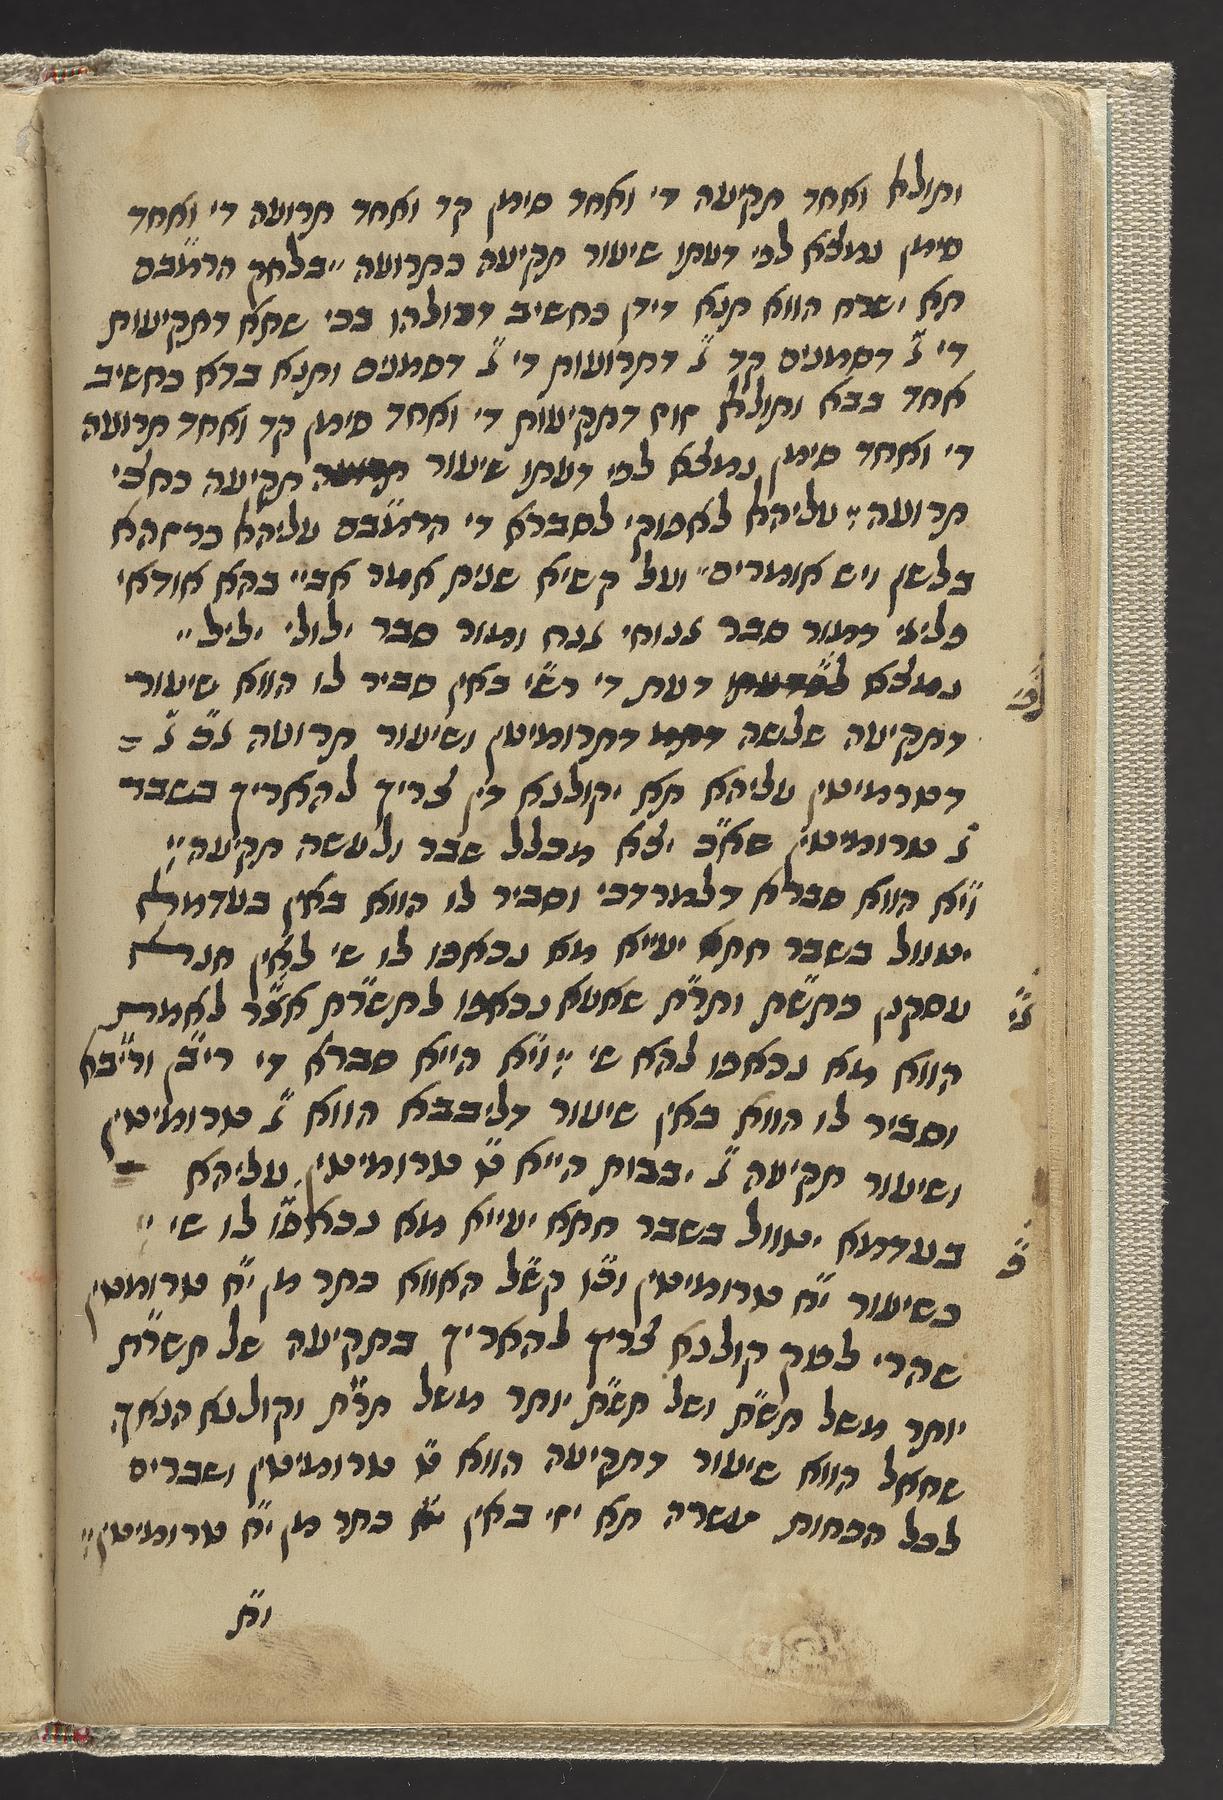 ותולא ואחד תקיעה די ואחד סימן קד ואחד תרועה די ואחד
סימן נמצא לפי דעתו שיעור תקיעה כתרועה״ בלחק הרמב״ם
תא ישבח הווא תנא דידן כחשיב דכולהו בבי שתא דתקיעות
די ג̈ דסמנים קד ג̈ דתרועות די ג̈ דסמנים ותנא ברא כחשיב
אחד בבא ותולא דתקיעות די ואחד סימן קד ואחד תרועה
די ואחד סימן נמצא לפי דעתו שיעור תקיעה כחצי
תרועה״ עליהא לאפוקי לסברא די הרמב״ם עליהא כרזהא
בלשן ויש אומרים״ ועל קשיא שנית אמר אביי בהא אודאי
פליגי דמור סבר גנוחי גנח ומור סבר ילולי יליל״
נמצא דעת די רש״י כאין סביר לו הווא שיעור
דתקיעה שלשה דתרומיטין ושיעור תרועה ג״כ ג̈
דטרמיטין עליהא תא יקולנא דין צריך להאריך בשבר
ג̈ טרומיטין שא״כ יצא מכלל שבר ולעשה תקיעה״
וי״א הווא סברא דלמרדכי וסביר לו הווא כאין בעדמלא
יטוול בשבר חתא יעייא מא נכאפו לו שי לאין חנרא
עסקנן בתש״ת ותר״ת שאטא נכאפו לתשר״ת אצ״ר לאמרת
הווא מא נכאפו להא שי״ וי״א הייא סברא די ריב״ן וריב״א
וסביר לו הווא כאין שיעור דליבבא הווא ג̈ טרומיטין
ושיעור תקיעה ג̈ יבבות הייא ט̈ טרומיטין עליהא
בעדמא יטוול בשבר חתא יעייא מא נכאפו לו שי
כשיעור י״ח טרומיטין וכ״ן קש״ל האווא כתר מן י״ח טרומטין
שהרי לטק קולנא צריך להאריך בתקיעה של תשר״ת
יותר משל תש״ת ושל תש״ת יותר משל תר״ת וקולנא הנאך
שחאל הווא שיעור דתקיעה הווא ט̈ טרומיטין ושברים
לכל הפחות עשרה תא יזי כאין כתר מן י״ח טרומיטין״
וי״ת